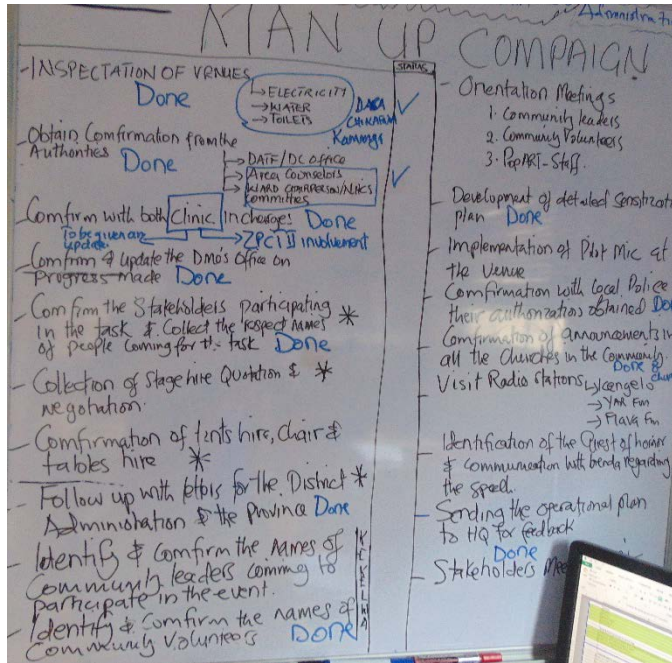 Administrati
MAN UP COMPAIGN
STATUS
- INSPECTATION OF VENUES
Done
→ ELECTRICITY
→ WATER
→ TOILETS
DACA
CHIKAPUM
Kamuonga
✓
- Obtain Comfirmation from the
Authorities
Done
→ DATF/DC OFFICE
→ Area Counselors
→ WARD COMRPERSON/NHCs
Committees
✓
- Comfirm with both Clinic Incharges Done
To be given an
update
ZPCT II involvement
- Comfirm & update the DMO's Office on
Progress made Done
- Comfirm the Stakeholders participating
in the task & Collect the respect names *
of people coming for the task Done
- Collection of Stage hire Quotation & *
negotiation.
- Comfirmation of tents hire, Chair &
tables hire *
- Follow up with letters for the District *
Administration & the Province Done
- Identify & Comfirm the Names of
Community leaders comming to
participate in the event.
- Identify & Comfirm the names of
Community Volunteers Done
- Orientation Meetings
1. Community leaders
2. Community Volunteers
3. PopART-Staff.
- Development of detailed Sensitizati
plan Done
- Implementation of Pilot Mic at
the Venue
- Comfirmation with Local Police
their authorization obtained Don
- Comfirmation of announcements in
all the Churches in the Community
Done 8
- Visit Radio Stations → Icengelo
→ YAR Fm
→ Flava Fm
- Identification of the Guest of honor
& Communication with benda regarding
the speech
- Sending the operational plan
to HQ for feedback
Done
- Stakeholders Mee